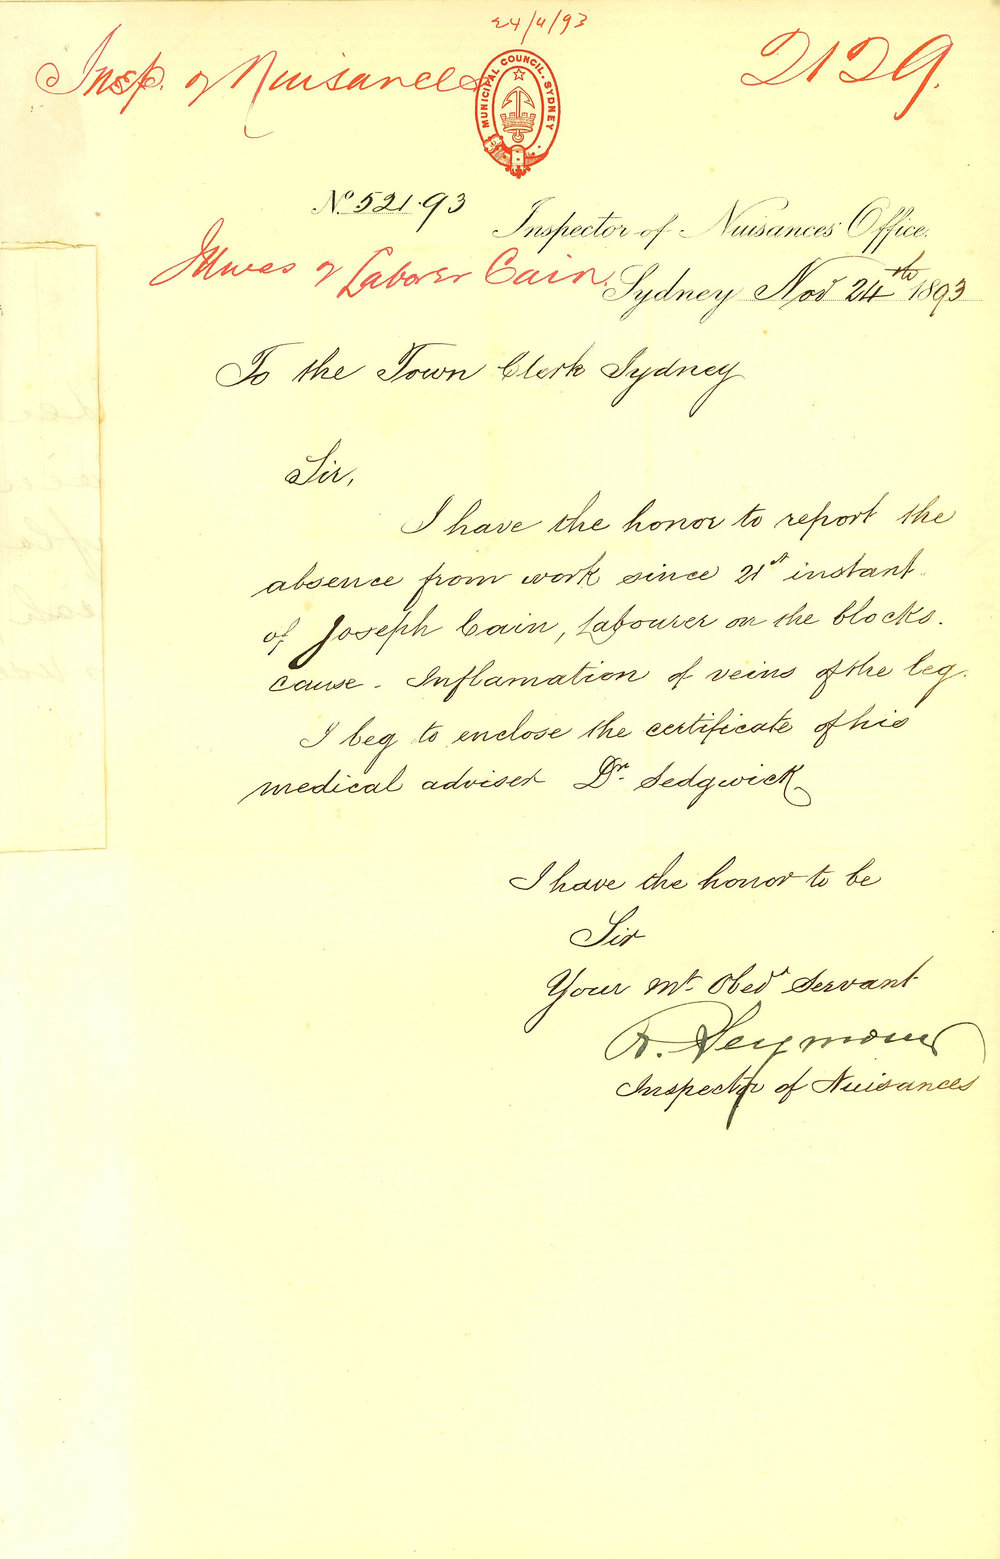 24/11/93
Insp. of Nuisances
2129.
MUNICIPAL COUNCIL. SYDNEY
No. 521.93
Inspector of Nuisances Office.
Illness of Laborer Cain.
Sydney Nov 24th 1893
To the Town Clerk Sydney
Sir,
I have the honor to report the
absence from work since 21st instant.
of Joseph Cain, Labourer on the blocks.
cause - Inflamation of veins of the leg.
I beg to enclose the certificate of his
medical adviser Dr. Sedgwick
I have the honor to be
Sir
Your Mt. Obedt Servant
R. Seymour
Inspector of Nuisances